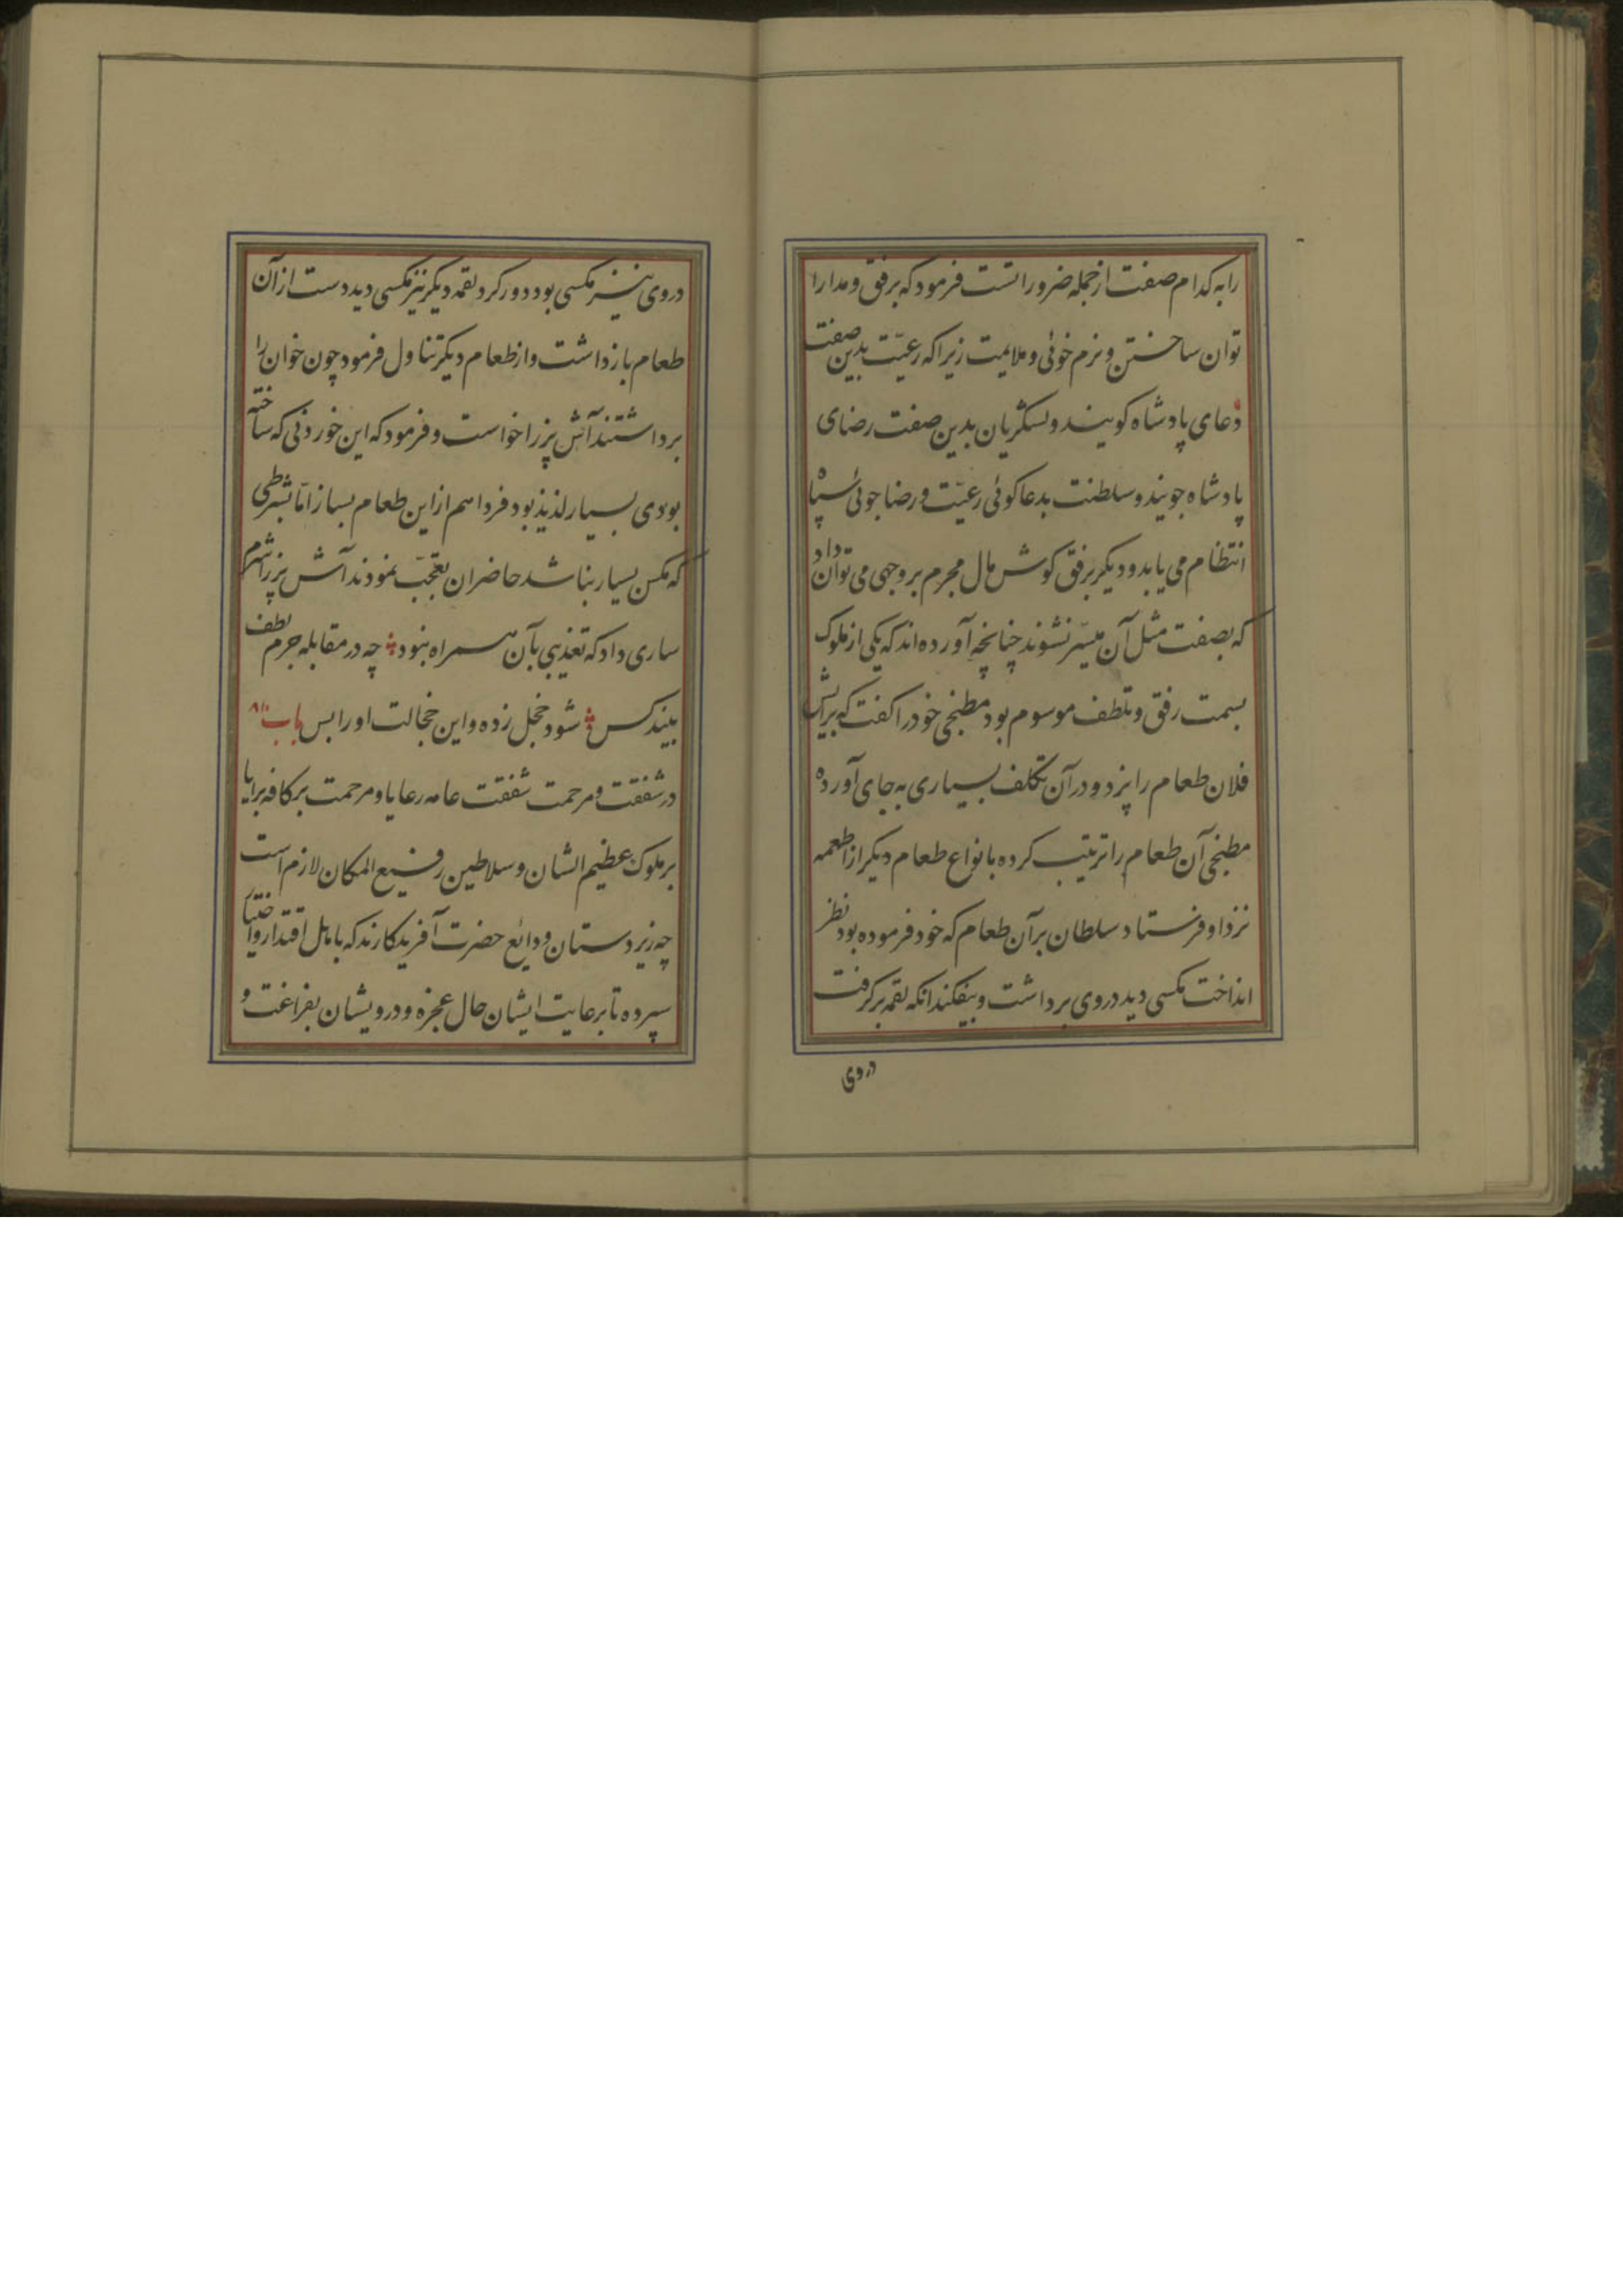 را به کدام صفت از جمله ضرورا تست فرمود که برفق و مدارا
توان ساختن و نرم خوئی و ملایمت زیرا که رعیّت بدین صفت
دعای پادشاه کویند و لسکریان بدین صفت رضای
پادشاه جویند و سلطنت بدعا کوئی رعیّت و رضا جوئی سپاه
انتظام می یابد و دیکر برفق کوش مال مجرم بر وجهی می توان داد
که بصفت مثل آن میسّر نشوند چنانچه آورده اند که یکی از ملوک
بسمت رفق و تلطف موسوم بود مطبخی خود را کفت که برایش
فلان طعام را پزد و در آن تکلف بسیاری به جای آورده
مطبخی آن طعام را ترتیب کرده با نواع طعام دیکر از اطعمه
نزد او فرستاد سلطان بر آن طعام که خود فرموده بود نظر
انداخت مکسی دید در وی برداشت و بیفکند انکه لقمه برکرفت
در وی
در وی نیز مکسی بود دور کرد لقمه دیکر نیز مکسی دید دست از آن
طعام باز داشت و از طعام دیکر تناول فرمود چون خوان را
برداشتند آش پز را خواست و فرمود که این خوردنی که ساخته
بودی بسیار لذیذ بود فردا هم از این طعام بساز امّا بشرطی
که مکس بسیار نباشد حاضران تعجّب نمودند آش پز را شرم
ساری داد که تعذیبی بآن همراه نبود چه در مقابله جرم لطف
بیند کس شود خجل زده و این خجالت او را بس باب ۱۸
در شفقت و مرحمت شفقت عامه رعایا و مرحمت بر کافه برایا
بر ملوک عظیم الشان و سلاطین رفیع المکان لازم است
چه زیر دستان ودائع حضرت آفریدکارند که باهل اقتدار و اختیار
سپرده تا برعایت ایشان حال عجزه و درویشان بفراغت و